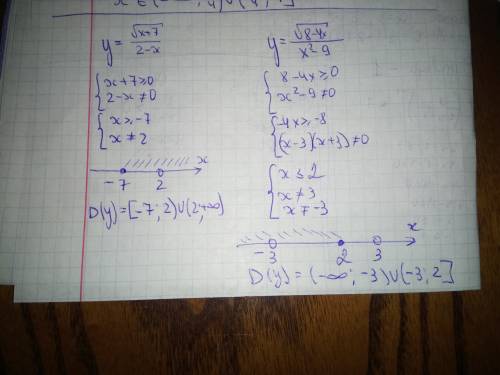 y = √(x+7) / (2-x)
{ x+7 ≥ 0
2-x ≠ 0
{ x ≥ -7
x ≠ 2
-7 2 x
D(y) = [-7; 2) ∪ (2; +∞)
y = √(8-4x) / (x² - 9)
{ 8-4x ≥ 0
x² - 9 ≠ 0
{ -4x ≥ -8
(x-3)(x+3) ≠ 0
{ x ≤ 2
x ≠ 3
x ≠ -3
-3 2 3 x
D(y) = (-∞; -3) ∪ (-3; 2]